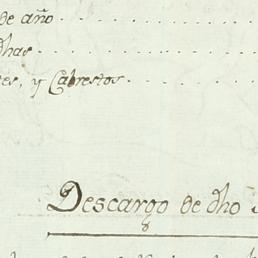 de año
dhas
y Cabrestos
Descargo de dho